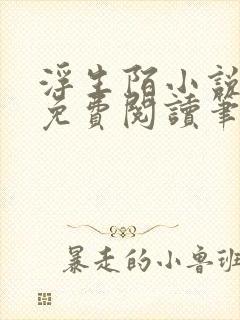 浮生陌小說
免費閱讀筆
暴走的小魯班